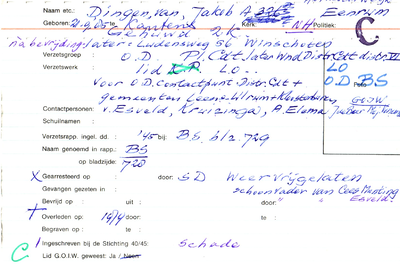 Naam etc. Dingen, van Jakob A. 3263 Eenrum
Geboren: 2.4.05 te Kantens Kerk N.H. Politiek
Gehuwd 2 K
na bevrijding: later: Ludensweg 56 Winschoten
Verzetsgroep : O.D. Pl. Cdt. later Wnd Distr Cdt district VI
Verzetswerk : lid L.O.
LO
O.D. BS
voor O.D. contactpunt Distr. Cdt +
gemeenten Leens - Ulrum - Kloosterburen
Contactpersonen: v. Esveld, Kruizinga, A. Elema
Schuilnamen :
Verzetsrapp. ingel. dd. : '45 bij: B.S. blz 729
Naam genoemd in rapp.: BS
op bladzijde: 728
X Gearresteerd op : door: SD Weer vrijgelaten
Gevangen gezeten in : schoonvader van Cees Munting
Bevrijd op : uit : door: " " Esveld
+ Overleden op : 14/4 door: te :
Begraven op : te :
Ingeschreven bij de Stichting 40/45: Schade
C Lid G.O.I.W. geweest: Ja / Neen